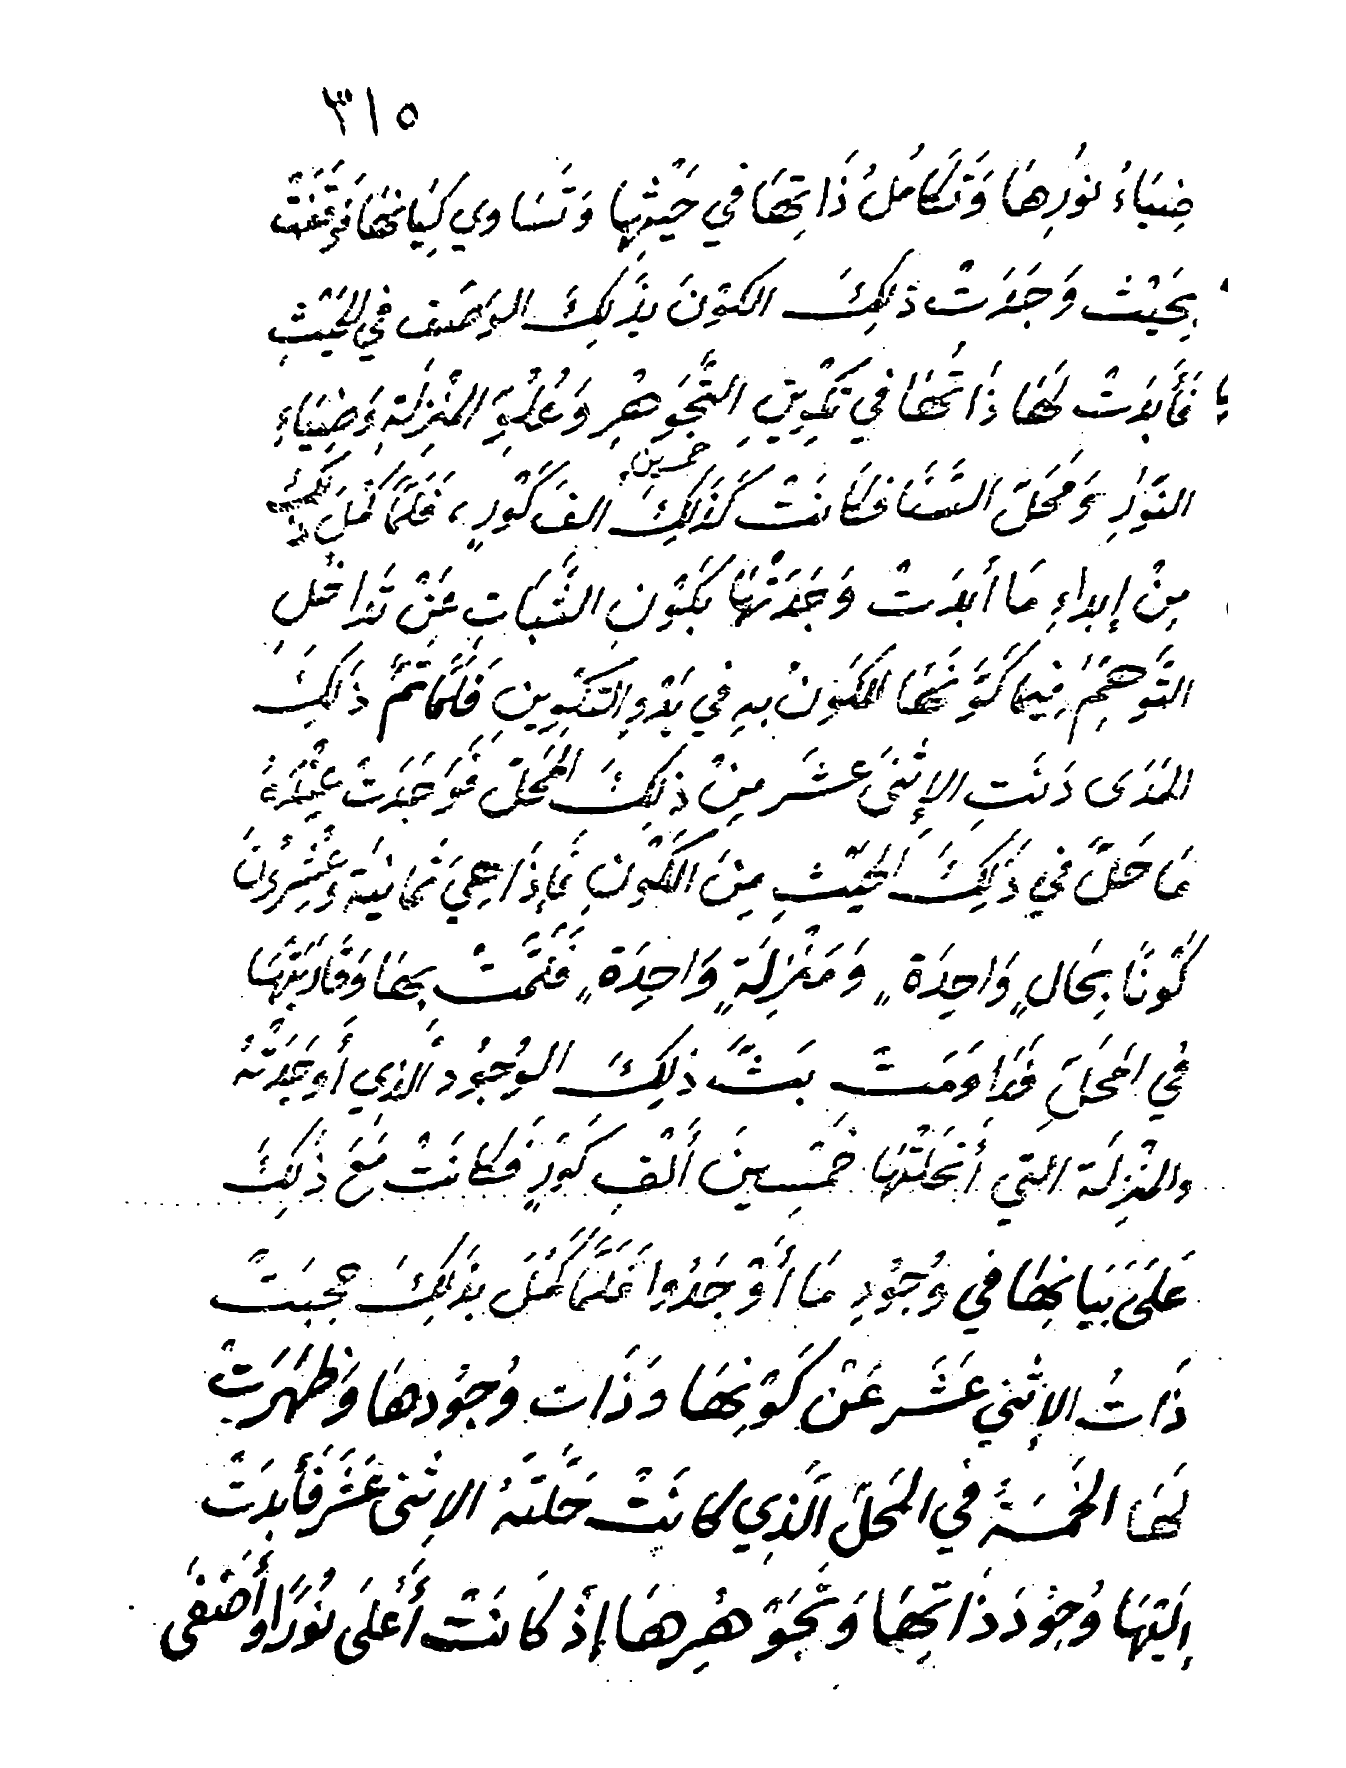 ٣١٥
ضِيَاءُ نُورِهَا وَتَكَامُلُ ذَاتِهَا في حَيْثِهَا وَتَسَاوي كِيَانِهَا
بِحَيْثُ وَجَدَتْ ذلِكَ الكَوْنَ بِذَلِكَ الوَصْفِ في الحَيْثِ
فَأَبدَتْ لَهَا ذَاتُهَا في تَكْوِينِ التَّجَوهُرِ وَعُلُوِّ المَنْزِلَةِ وَضِيَاءِ
النُّورِ وَمَحَلِّ السَّنَا فكَانَتْ كَذَلِكَ خمسين الفَ كَوْرٍ، فَلَمَّا كَمَلَ ذلك
مِنْ إبداءِ مَا أَبدَتْ وَجَدَتْهَا بِكَوْنِ الثَّبَاتِ عَنْ تَدَاخُلِ
التَّوهُّمِ فِيمَا كَوَّنَهَا المُكَوِّنُ بهِ في بَدْوِ التكْوِينِ فَلَمَّا تَمَّ ذَلِكَ
المَدَى دَنَتِ الإِثْنَى عَشَر مِنْ ذلِكَ المَحَلِّ فَوَجَدَتْ عِنْدَهُ
مَا حَلَّ في ذَلِكَ الحَيْثِ مِنَ الكَوْنِ فَإِذَا هِيَ ثمانيَة وَعُشْرُونَ
كَوْنَا بِحَالٍ وَاحِدَةٍ وَمَنْزِلَةٍ وَاحِدَةٍ فَتَمَّتْ بِهَا وَقَارَبَتْهَا
في المَحَلِّ فَدَاوَمَتْ بَثَّ ذلِكَ الوُجُودِ الَّذِي أَوجَدَتْهُ
والمَنْزِلَة التي أَحَلَتْهَا خَمْسِينَ أَلْفِ كَوْرٍ فَكَانَتْ مَعَ ذَلِكَ
عَلَى بَيَانِهَا في وُجُودِ مَا أَوْجَدُوا فَلَمَّا كَمُلَ بذَلِكَ حجبَتْ
ذَاتُ الإِثْني عَشَر عَنْ كَوْنِهَا وَذَات وُجُودهَا وَظَهَرَتْ
لَهَا الخَمْسَةُ في المَحَلِّ الَّذِي كَانَتْ حَلَّتهُ الإِثْنَى عَشَر فَأَبدَتْ
إِلَيْهَا وُجُودَ ذَاتِهَا وَتَجَوْهُرِهَا إِذْ كَانَتْ أَعْلَى نُورًا وأَصْفَى